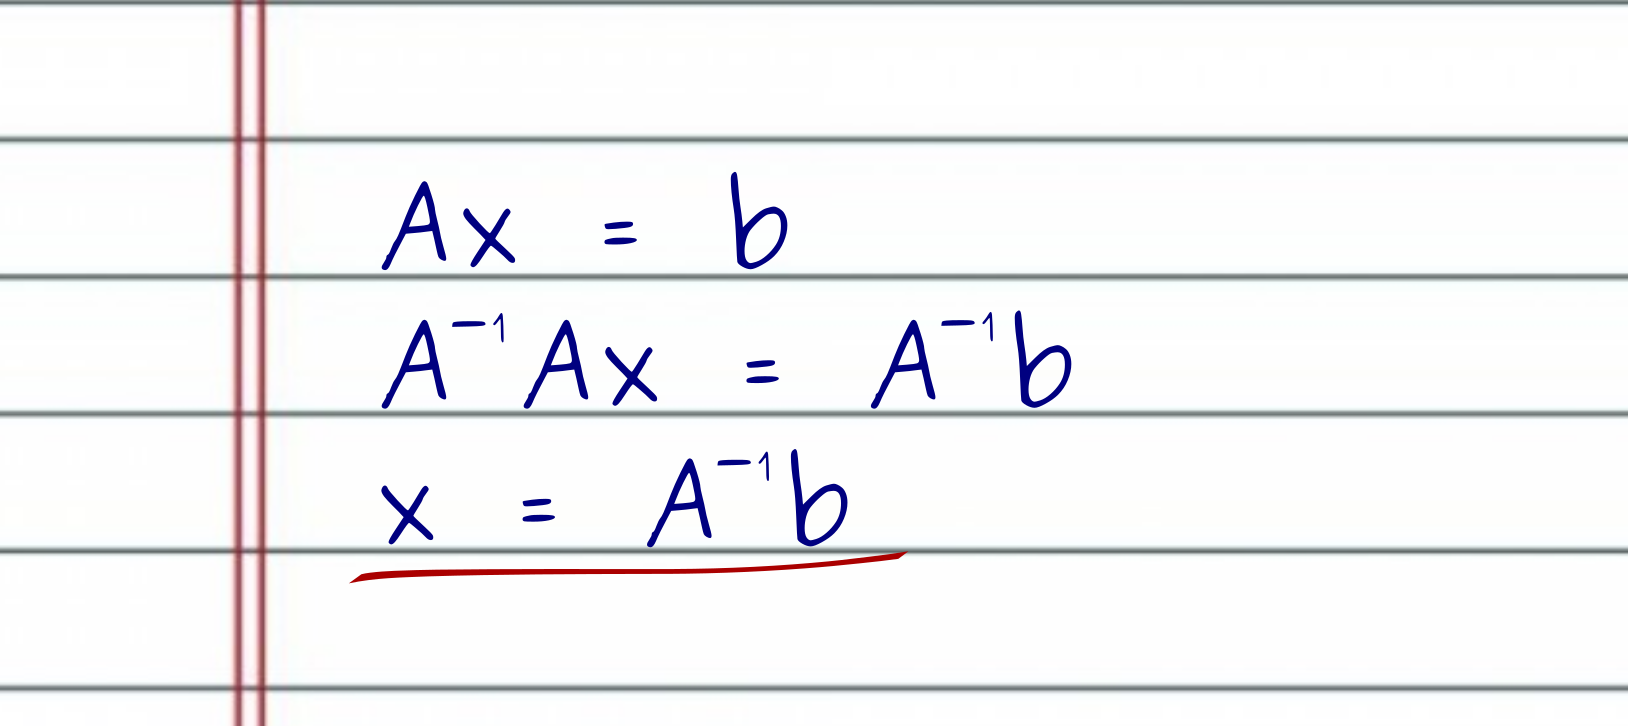 Ax = b
A⁻¹Ax = A⁻¹b
x = A⁻¹b